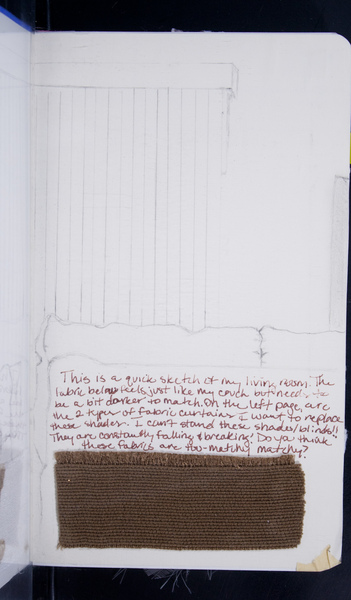 This is a quick sketch of my living room. The
fabric below feels just like my couch but needs to
be a bit darker to match. On the left page, are
the 2 types of fabric curtains I want to replace
these shades. I can't stand these shades/blinds!!
They are constantly falling & breaking! Do ya think
these fabrics are too-matchy matchy?